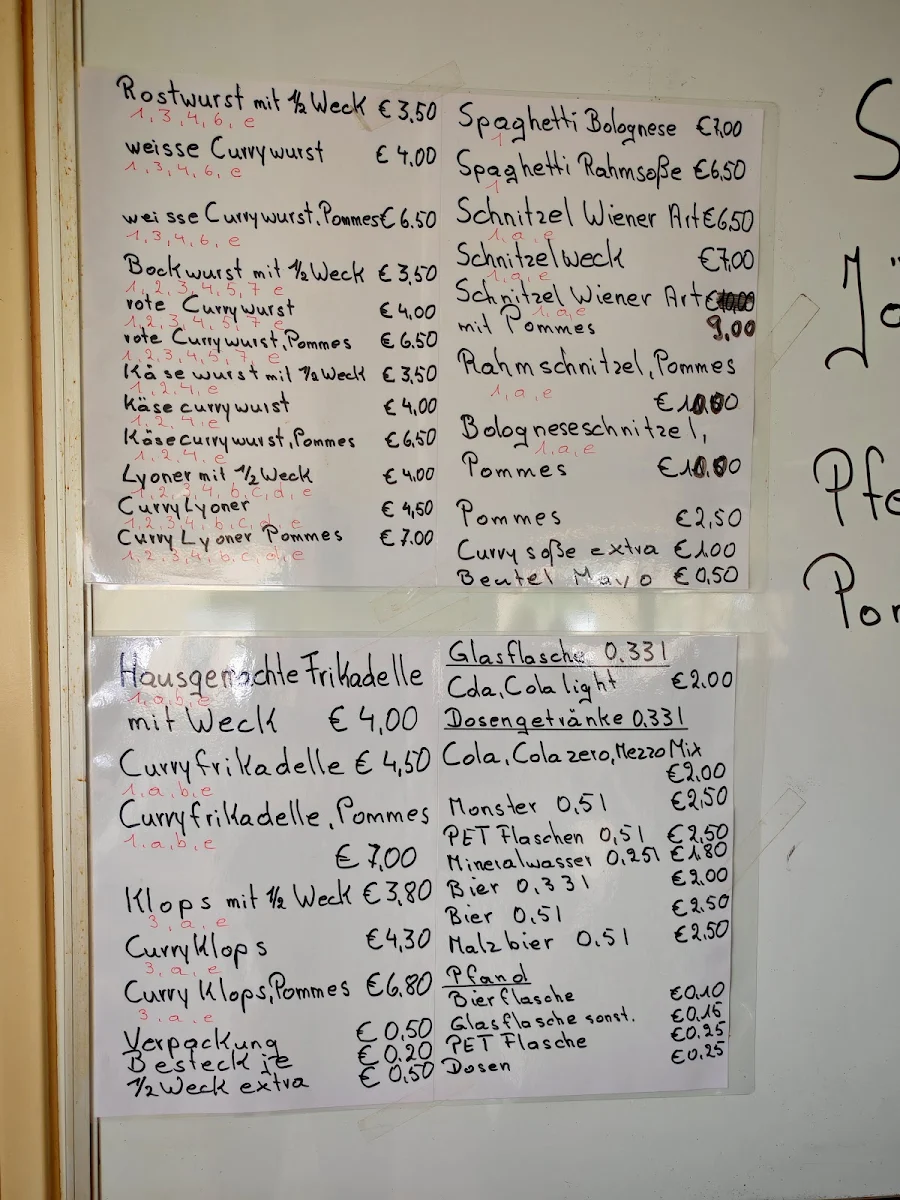 Rostwurst mit ½ Weck € 3,50
1, 3, 4, 6, e
weisse Currywurst € 4,00
1, 3, 4, 6, e
weisse Currywurst, Pommes € 6.50
1, 3, 4, 6, e
Bockwurst mit ½ Weck € 3,50
1, 2, 3, 4, 5, 7 e
rote Currywurst € 4,00
1, 2, 3, 4, 5, 7 e
rote Currywurst, Pommes € 6.50
1, 2, 3, 4, 5, 7, e
Käsewurst mit ½ Weck € 3,50
1, 2, 4, e
Käsecurrywurst € 4,00
1, 2, 4, e
Käsecurrywurst, Pommes € 6,50
1, 2, 4, e
Lyoner mit ½ Weck € 4,00
1, 2, 3, 4, b, c, d, e
Curry Lyoner € 4,50
1, 2, 3, 4, b, c, d, e
Curry Lyoner Pommes € 7.00
1, 2, 3, 4, b, c, d, e
Spaghetti Bolognese €7,00
1
Spaghetti Rahmsoße €6,50
1
Schnitzel Wiener Art €6,50
1, a, e
Schnitzelweck €7,00
1, a, e
Schnitzel Wiener Art €
1, a, e
mit Pommes 9,00
Rahmschnitzel, Pommes
1, a, e
€ 10.00
Bologneseschnitzel,
1, a, e
Pommes € 10.00
Pommes €2,50
Currysoße extra €1.00
Beutel Mayo € 0,50
Hausgemachte Frikadelle
1, a, b, e
mit Weck € 4,00
Curryfrikadelle € 4,50
1, a, b, e
Curryfrikadelle, Pommes
1. a, b, e
€ 7,00
Klops mit ½ Weck € 3,80
3, a, e
Curry Klops €4,30
3, a, e
Curry Klops, Pommes €6.80
3. a. e
Verpackung € 0,50
Besteck je € 0.20
½ Weck extra € 0,50
Glasflasche 0.33l
Cola, Cola light €2.00
Dosengetränke 0.33l
Cola, Cola zero, Mezzo Mix
€2.00
Monster 0,5l €2,50
PET Flaschen 0,5l €2,50
Mineralwasser 0,25l €1.80
Bier 0.33l €2.00
Bier 0.5l €2.50
Malzbier 0.5l €2,50
Pfand
Bierflasche €0.10
Glasflasche sonst. €0.15
PET Flasche €0.25
Dosen €0.25
S
Pfe